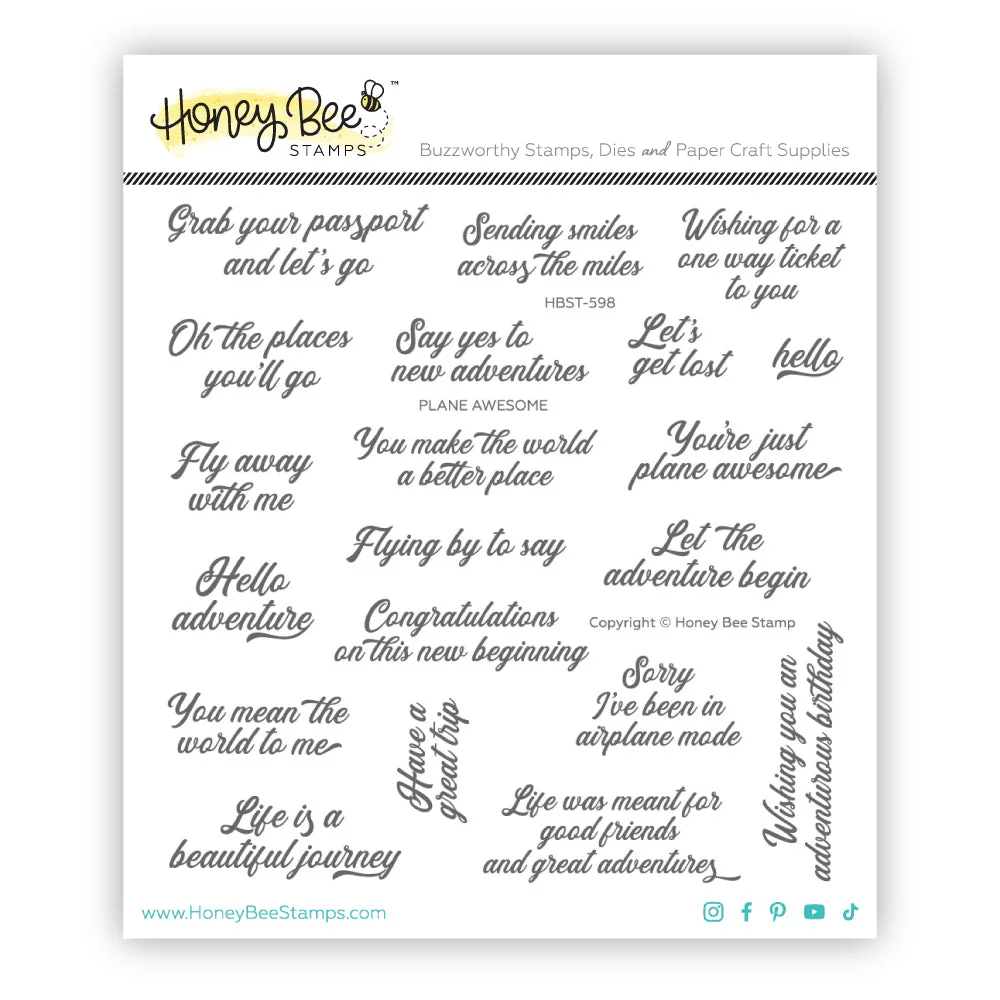 Honey Bee™
STAMPS
Buzzworthy Stamps, Dies and Paper Craft Supplies
Grab your passport
and let's go
Sending smiles
across the miles
HBST-598
Wishing for a
one way ticket
to you
Oh the places
you'll go
Say yes to
new adventures
PLANE AWESOME
Let's
get lost
hello
Fly away
with me
You make the world
a better place
You're just
plane awesome
Flying by to say
Let the
adventure begin
Hello
adventure
Congratulations
on this new beginning
Copyright © Honey Bee Stamp
You mean the
world to me
Have a
great trip
Sorry
I've been in
airplane mode
Wishing you an
adventurous birthday
Life is a
beautiful journey
Life was meant for
good friends
and great adventures
www.HoneyBeeStamps.com